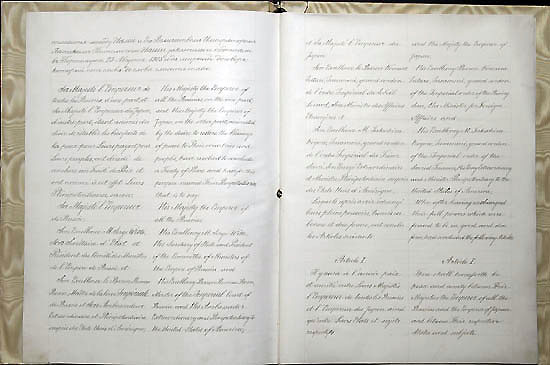 Sa Majesté l'Empereur de
toutes les Russies d'une part, et
Sa Majesté l'Empereur du Japon,
d'autre part, étant animés du
désir de rétablir les bienfaits de
la paix pour Leurs pays et pour
Leurs peuples, ont décidé de
conclure un Traité de Paix et
ont nommé à cet effet Leurs
Plénipotentiaires, savoir:
Sa Majesté l'Empereur
de Russie
Son Excellence M. Serge Witte,
Son Secrétaire d'Etat et
Président du Comité des Ministres
de l'Empire de Russie, et
Son Excellence le Baron Roman
Rosen, Maître de la Cour Impériale
de Russie et Son Ambassadeur
Extraordinaire et Plénipotentiaire
auprès des Etats Unis d'Amérique,
His Majesty the Emperor of
all the Russias, on the one part,
and His Majesty the Emperor of
Japan, on the other part, animated
by the desire to restore the blessings
of peace to Their countries and
peoples, have resolved to conclude
a Treaty of Peace and have for this
purpose named Their Plenipotentiaries
that is to say:
His Majesty the Emperor of
all the Russias
His Excellency M. Serge Witte,
His Secretary of State and President
of the Committee of Ministers of
the Empire of Russia, and
His Excellency Baron Roman Rosen,
Master of the Imperial Court of
Russia and His Ambassador
Extraordinary and Plenipotentiary to
the United States of America,
et Sa Majesté l'Empereur du
Japon
Son Excellence le Baron Komura
Jutaro,
de l'Ordre Impérial du Soleil
Levant, Son Ministre des Affaires
Etrangères et
Son Excellence M. Takahira
Kogoro,
de l'Ordre Impérial du
Sacré, Son Envoyé Extraordinaire
et Ministre Plénipotentiaire auprès
des Etats Unis d'Amérique,
Lesquels après avoir échangé
leurs pleins pouvoirs, trouvés en
bonne et due forme, ont conclu
les Articles suivants:
Article I.
Il y aura à l'avenir paix
et amitié entre Leurs Majestés
l'Empereur de toutes les Russies
et l'Empereur du Japon, ainsi
qu'entre Leurs Etats et sujets
respectifs.
and His Majesty the Emperor of
Japan
His Excellency Baron Komura
Jutaro,
of the Imperial Order of the Rising
Sun, His Minister for Foreign
Affairs and
His Excellency M. Takahira
Kogoro,
of the Imperial Order of the
Sacred Treasure, His Envoy Extraordinary
and Minister Plenipotentiary to the
United States of America,
Who, after having exchanged
their full powers which were
found to be in good and due
form, have concluded the following Articles
Article I.
There shall henceforth be
peace and amity between Their
Majesties the Emperor of all the
Russias and the Emperor of Japan
and between Their respective
States and subjects.